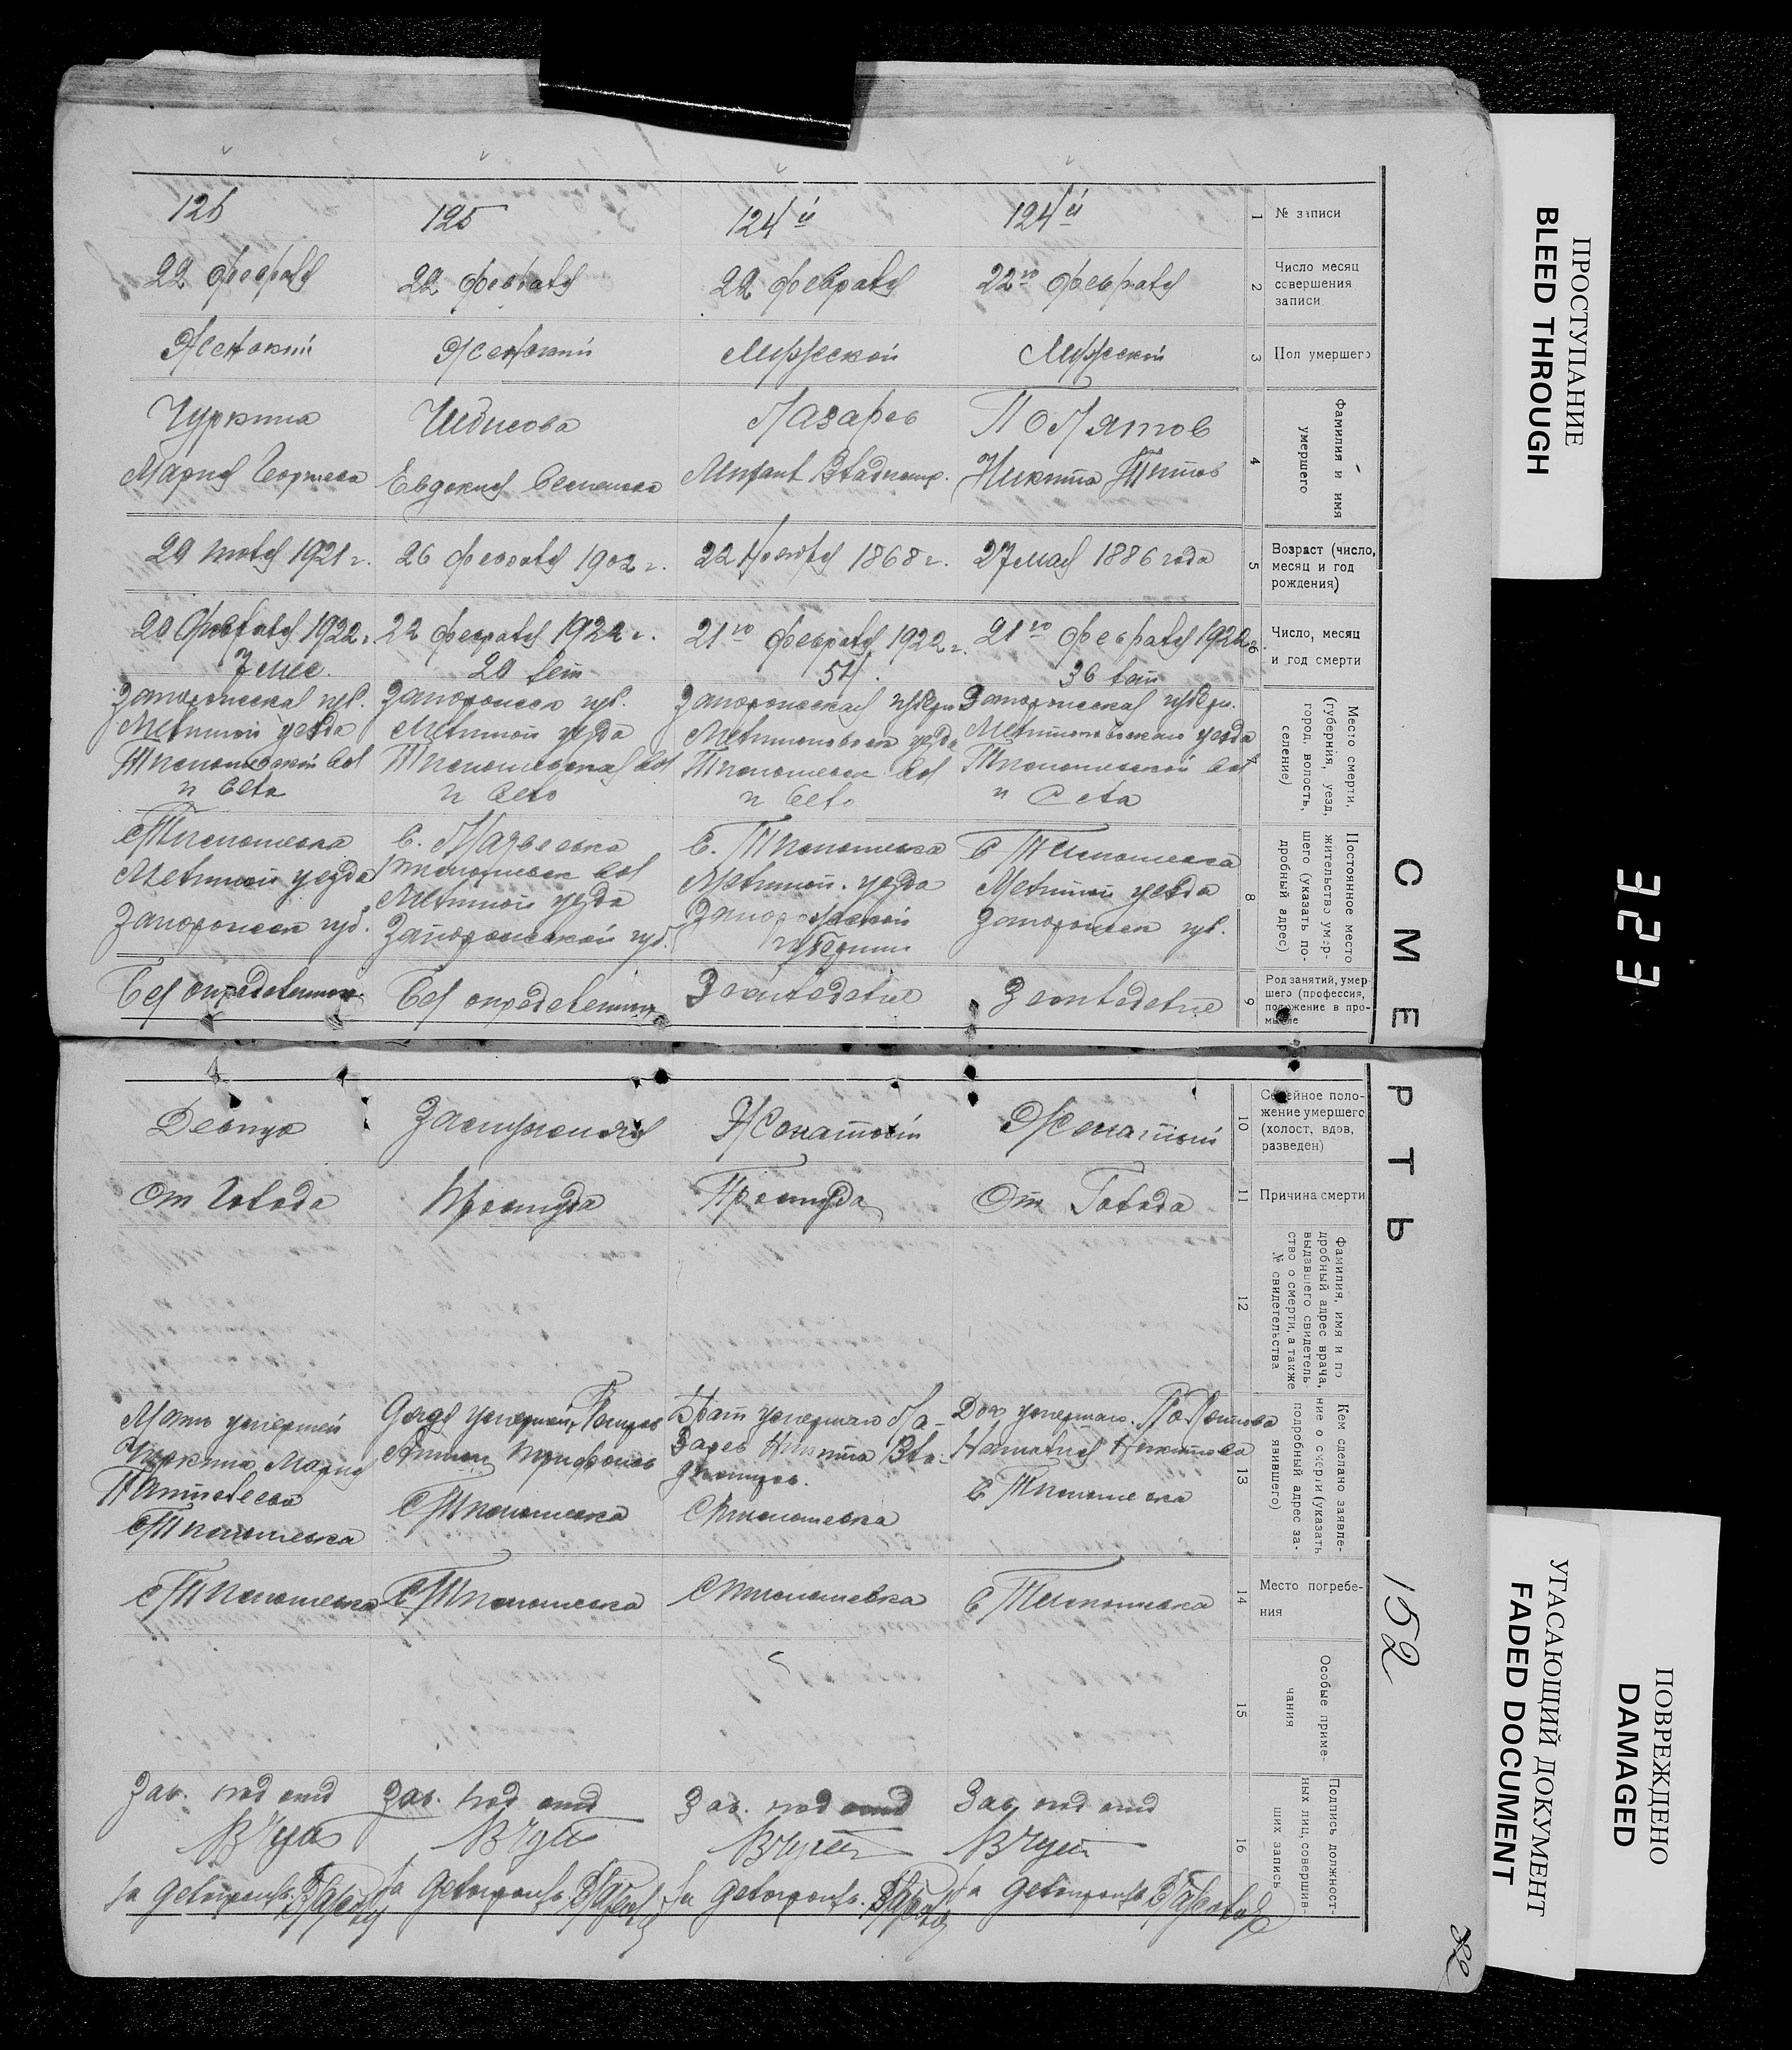 ПРОСТУПАНИЕ
BLEED THROUGH
323
УГАСАЮЩИЙ ДОКУМЕНТ
FADED DOCUMENT
ПОВРЕЖДЕНО
DAMAGED
СМЕРТЬ
152
1
№ записи
124й
124й
125
126
2
Число месяц
совершения
записи
22го февраля
22 февраля
22 февраля
22 февраля
3
Пол умершего
Мужской
Мужской
Женский
Женский
4
Фамилия и имя
умершего
Полятов
Никита Титов
Лазарев
Владимир.
Евдокия Семенова
Чуркина
Мария
5
Возраст (число,
месяц и год
рождения)
27 мая 1886 года
22 Ноября 1868 г.
26 февраля 1902 г.
29 июля 1921 г.
6
Число, месяц
и год смерти
21го февраля 1922
36 лет
21го февраля 1922 г.
54.
22 февраля 1922 г.
20 лет
20 февраля 1922 г.
7 мес.
7
Место смерти.
(губерния, уезд,
город, волость,
селение)
Запорожская губерн.
уезда
и села
Запорожская губерн
уезда
и село
Запорожск губ.
Мелитопол уезда
и село
Запорожская губ.
Мелитопол уезда
и села
8
Постоянное место
жительство умер-
шего (указать по-
дробный адрес)
С Тимошевка
Мелитоп уезда
Запорожск губ.
С. Тимошевка
Мелитоп. уезда
Запорожской
губернии
уезда
Запорожской губ.
с Тимошевка
уезда
Запорожск губ.
9
Род занятий, умер-
шего (профессия,
положение в про-
мысле
Земледелие
Земледелие
Без определенн
Без определенн
10
Семейное поло-
жение умершего
(холост, вдов,
разведен)
Женатый
Женатый
Замужняя
Девица
11
Причина смерти
От Голода
Простуда
Простуда
От Голода
12
Фамилия, имя и по
дробный адрес врача,
выдавшего свидетель-
ство о смерти, а также
№ свидетельства
13
Кем сделано заявле-
ние о смерти (указать
подробный адрес за-
явившего)
Дочь умершего. Полятова
Наталия Никитова
С Тимошевка
Брат умершаго Ла-
зарев Никита Вла-
димиров.
С Тимошевка
Дядя умершей
Трифонов
С Тимошевка
Мать умершей
Чуркина Мария
Пантелеева
С Тимошевка
14
Место погребе-
ния
С Тимошевка
С Тимошевка
С Тимошевка
С Тимошевка
15
Особые приме-
чания
16
Подпись должност-
ных лиц, совершив-
ших запись
Зав. под отд
За делопроизв.
Зав. под отд
За делопроизв.
Зав. под отд
За делопроизв.
Зав. под отд
За делопроизв.